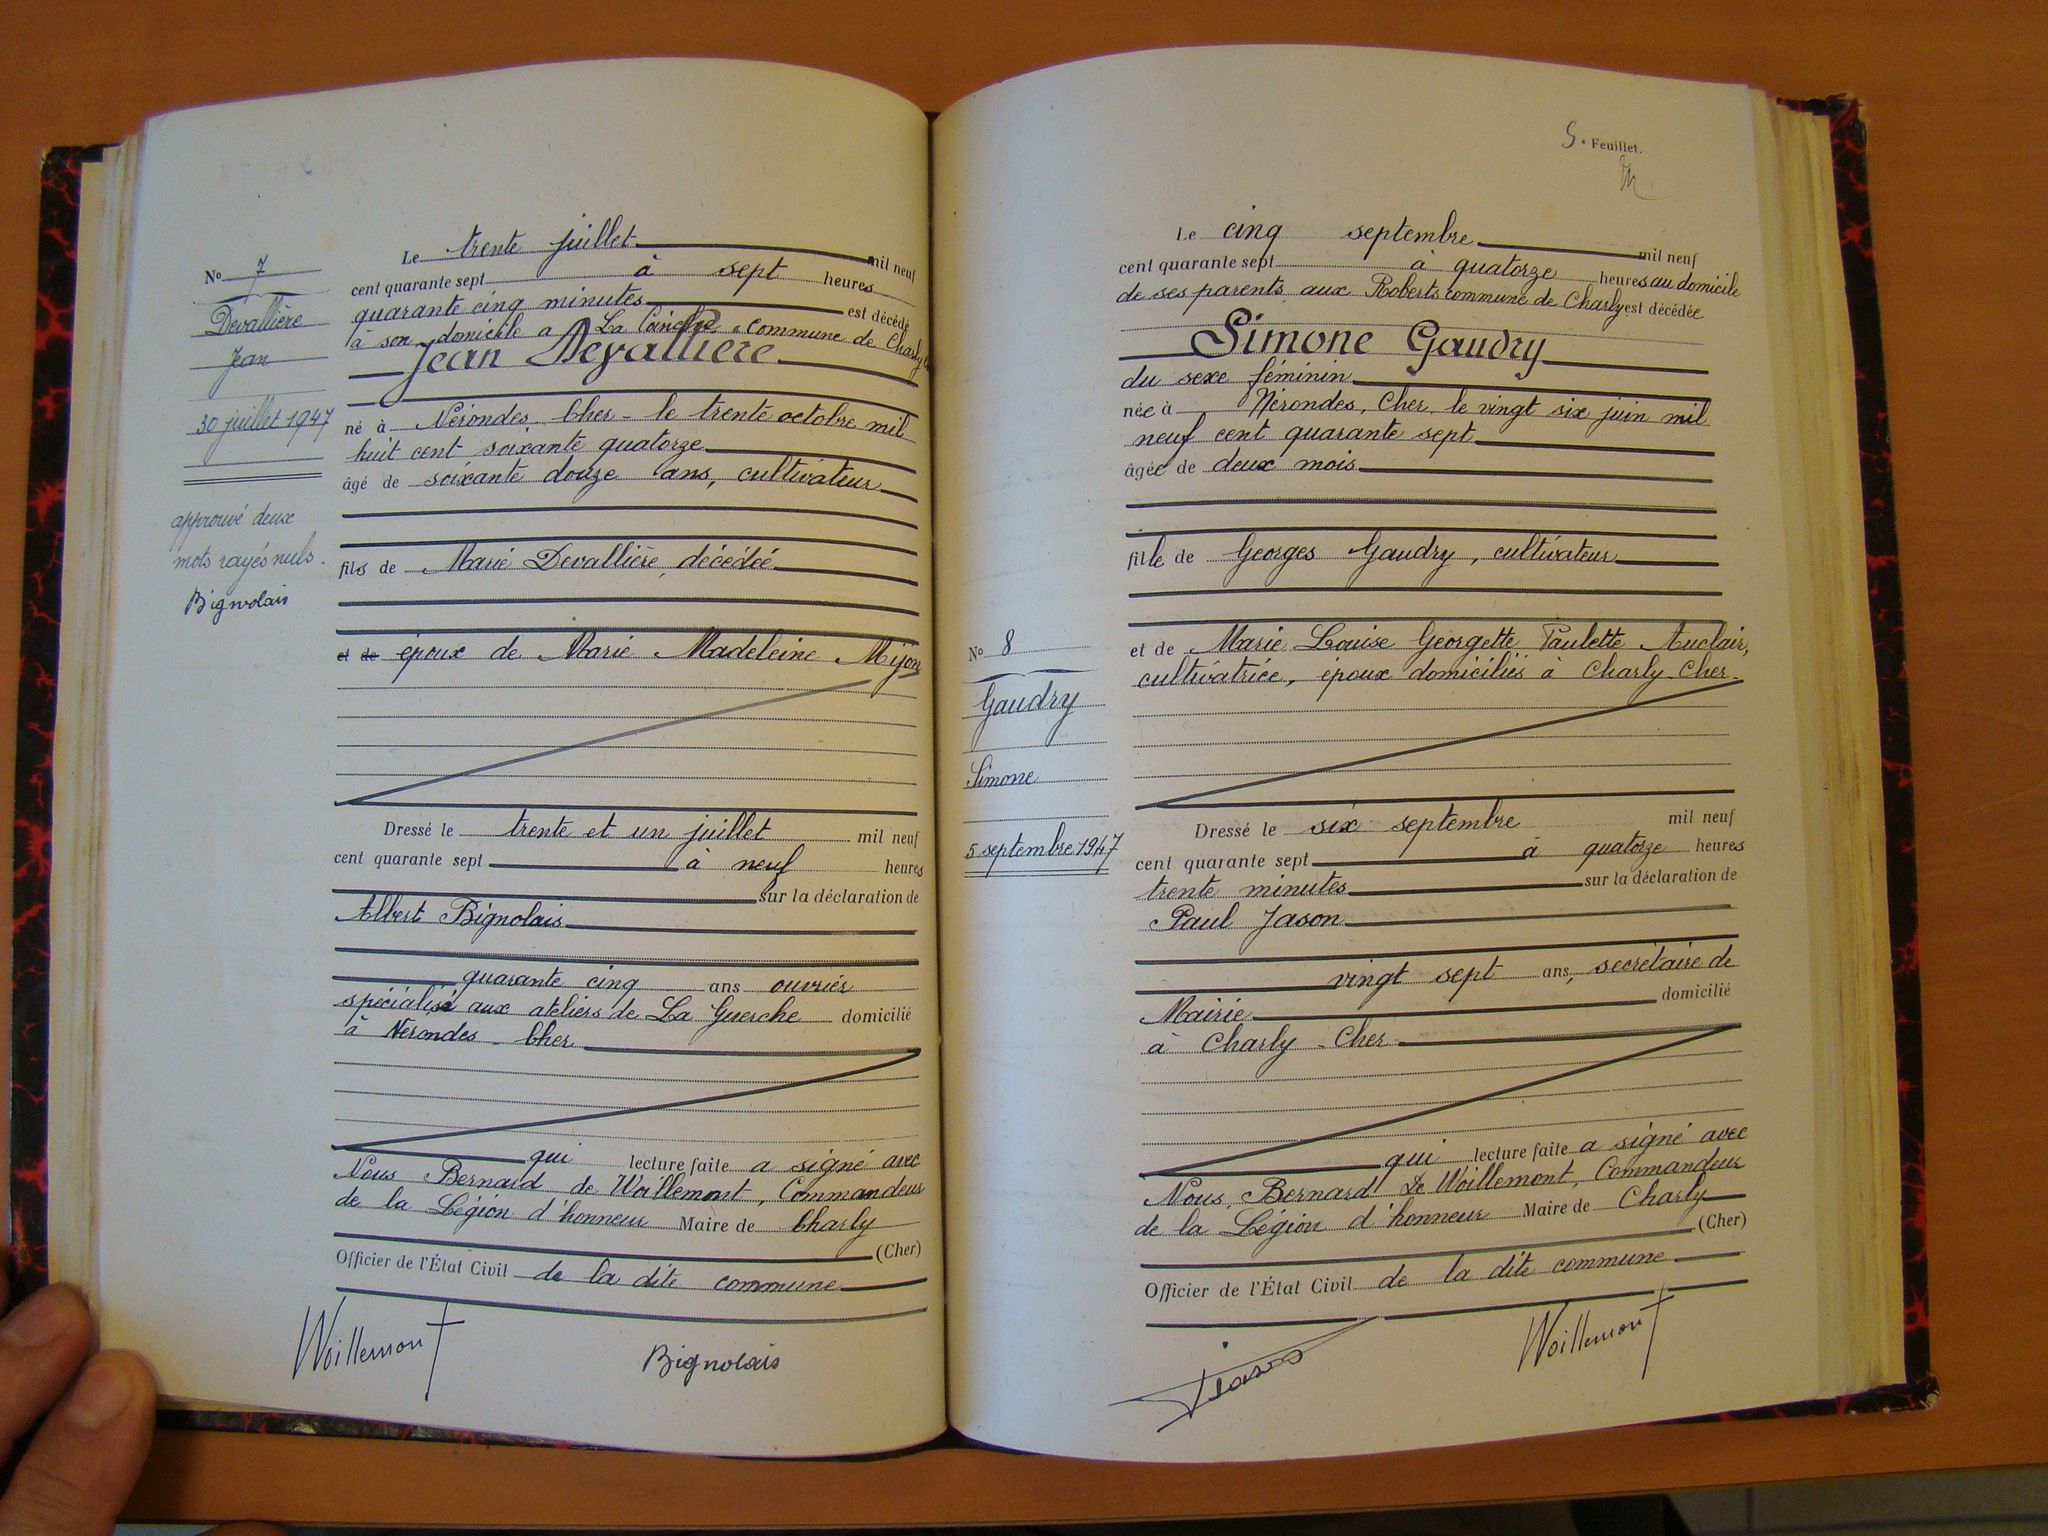 N° 7
Devallière
Jean
30 juillet 1947
approuvé deux
mots rayés nuls.
Bignolais
Le trente juillet mil neuf
cent quarante sept à sept heures
quarante cinq minutes est décédé
à son domicile a La commune de Charly
Jean Devallière
né à Nérondes Cher - le trente octobre mil
huit cent soixante quatorze
âgé de soixante douze ans, cultivateur
fils de Marie Devallière, décédée
et de époux de Marie Madeleine Mijon
Dressé le trente et un juillet mil neuf
cent quarante sept à neuf heures
sur la déclaration de
Albert Bignolais
quarante cinq ans ouvrier
spécialisé aux ateliers de La Guerche domicilié
à Nérondes - Cher
qui lecture faite a signé avec
Nous Bernard de Woillemont, Commandeur
de la Légion d'honneur Maire de Charly
(Cher)
Officier de l'État Civil de la dite commune
Woillemont
Bignolais
5e Feuillet.
N° 8
Gaudry
Simone
5 septembre 1947
Le cinq septembre mil neuf
cent quarante sept à quatorze heures au domicile
de ses parents aux Roberts commune de Charly est décédée
Simone Gaudry
du sexe féminin
née à Nérondes, Cher, le vingt six juin mil
neuf cent quarante sept
âgée de deux mois
fille de Georges Gaudry, cultivateur
et de Marie Louise Georgette Paulette Auclair,
cultivatrice, époux domiciliés à Charly-Cher-
Dressé le six septembre mil neuf
cent quarante sept à quatorze heures
trente minutes sur la déclaration de
Paul Jason
vingt sept ans, secrétaire de
Mairie domicilié
à Charly - Cher
qui lecture faite a signé avec
Nous, Bernard de Woillemont, Commandeur
de la Légion d'honneur Maire de Charly
(Cher)
Officier de l'État Civil de la dite commune
Jason
Woillemont